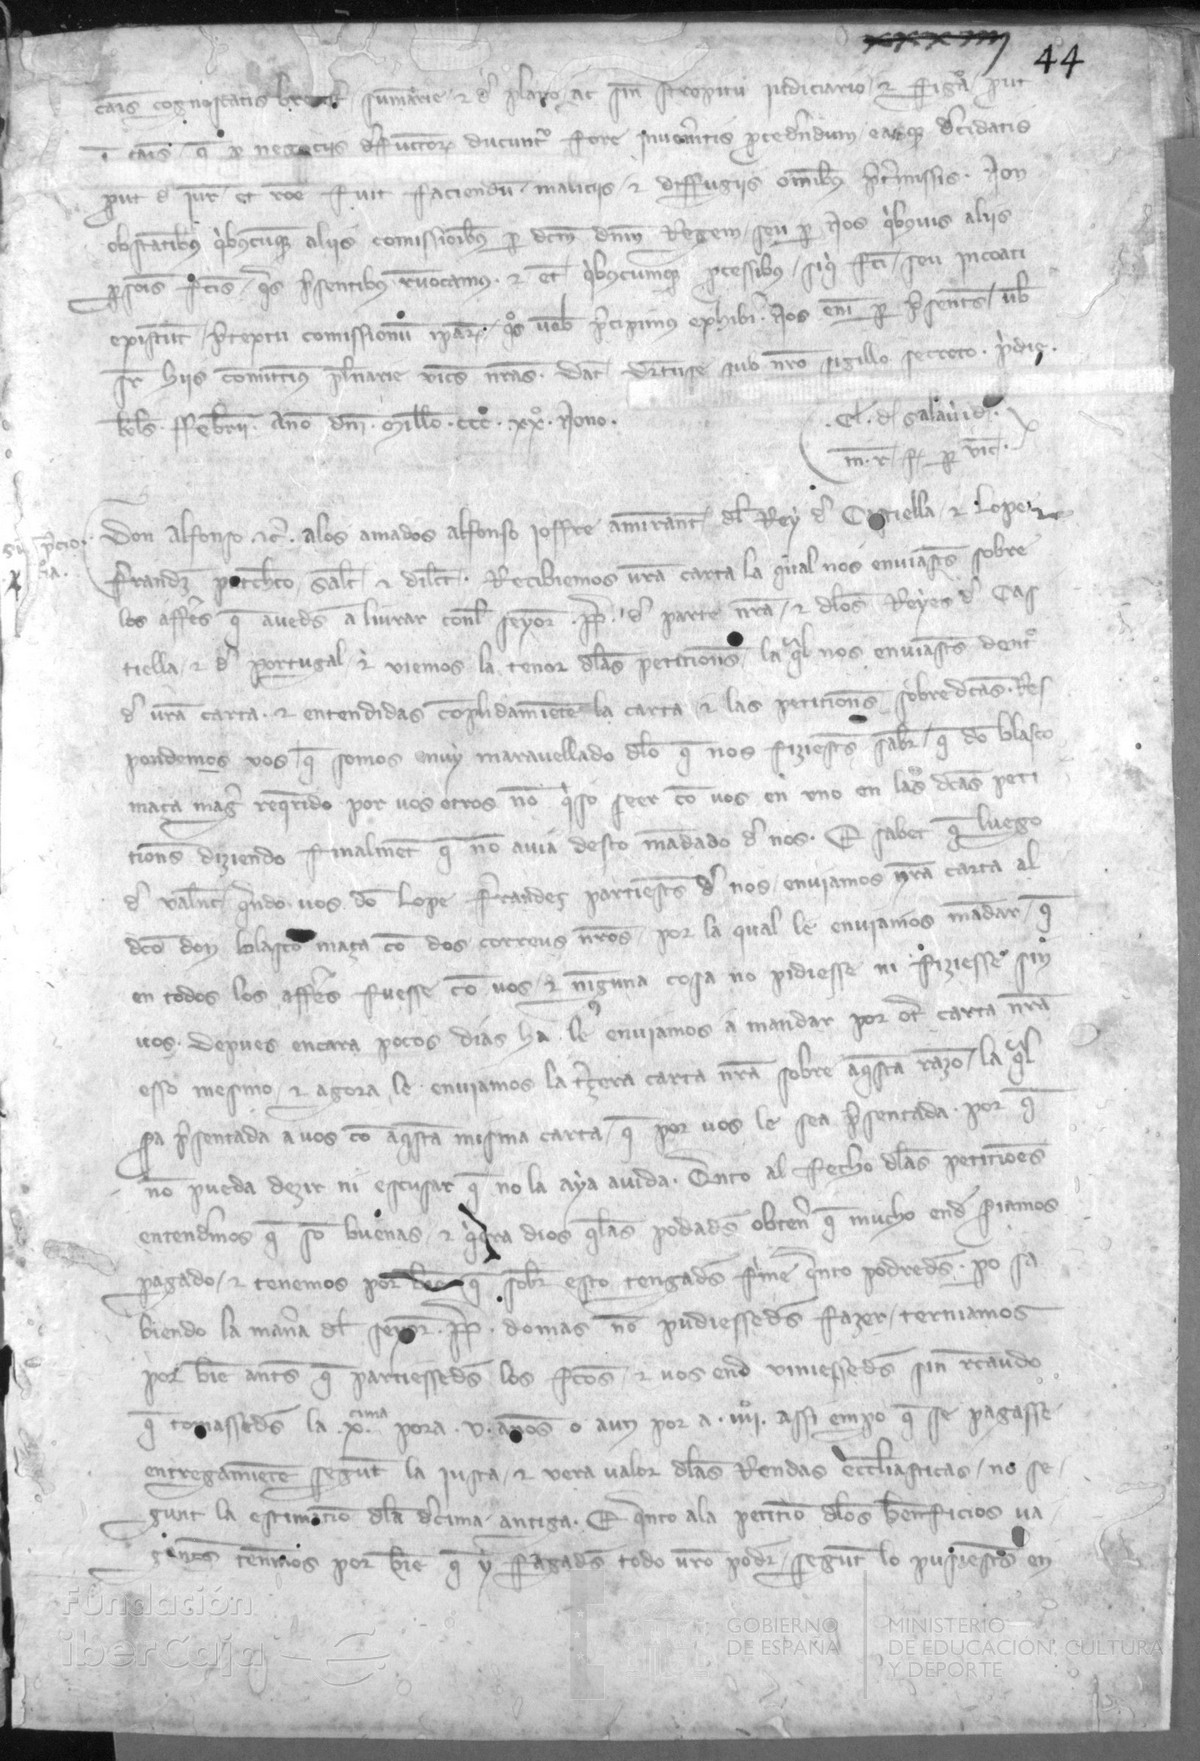 xxxiiij 44
causs cognoscatis breuit summarie et de plano ac sine strepitu judiciario et figura prout
in causis que per negociis ducuntur fore inueneritis procedendum easque decidatis
prout de iure et racoe fuit faciendum maliciis et diffugiis omnibus pretermissis. Non
obstantibus quibuscumque aliis comissionibus per dcm dnm Regem seu per Nos quibusuis aliis
personis fcis quas presentibus reuocamus et et quibuscumque processibus siqui fci seu incoati
extiterint pretextu comissionum ipar quos uob precipimus exhiberi Nos eni per presentes uob
super hiis comittimus plenarie vices nras. Dat Dertuse sub nro sigillo secreto. pridie
kls. Ffebrii. Ano dni. Millo. ccc. xx. Nono.
m. r. f. per vic.
Don Alfonso etc. alos amados alfonso Joffre amirant del Rey de Castiella et Lope
Frandez Patcheco Salt et dilect. Recibiemos vra carta la qual nos enviasts sobre
los affers que aveds a livrar conel seyor. PP. de parte nra et dlos Reyes de Cas
tiella et de Portugal et viemos la tenor dlas petitions la qual nos enviasts dentro
de vra carta. et entendidas complidamiente la carta et las petitions sobredcas. Res
pondemos vos que somos muy maravellado dlo que nos fiziests saber que do blasco
maça mager requerido por vos otros no quiso seer co vos en vno en las dcas peti
tions diziendo finalment que no avia desto madado de nos. E sabet que luego
de valent qndo vos do Lope Frandez partiests de nos enviamos nra carta al
dco don blasco maça co dos correus nros por la qual le enviamos madar que
en todos los affers fuesse co vos et ninguna cosa no pidiesse ni fiziesse sin
vos. Depues encara pocos dias ha le enviamos a mandar por otra carta nra
esso mesmo et agora le enviamos la tercera carta nra sobre aqsta razo la qual
sia presentada a vos co aqsta misma carta que por vos le sea presentada. por que
no pueda dezir ni escusar que no la aya avida. Qnto al fecho dlas petitioes
entendemos que so buenas et quiera dios qlas podads obtener que mucho end fiamos
pagado et tenemos por bie que sobre esto tengads fine qnto podreds. po sa
biendo la manera del seyor. PP. domas no pudiesseds fazer terniamos
por bie ants que partiesseds los fcos et vos end viniesseds sin recaudo
que tomasseds la .x.cima pora .v. anos o aun por a .iiii. assi empo que se pagasse
entregamiente segunt la justa et vera valor dlas Rendas ecclesiasticas no se
gunt la estimatio dla decima antiga. E qnto ala petitio dlos beneficios va
gants tenemos por bie que y fagads todo vro poder segunt lo pusiests en